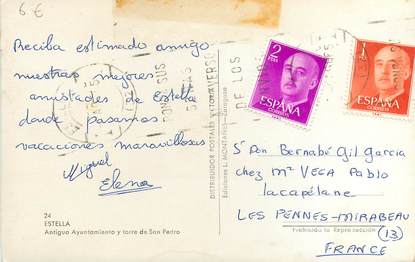 6€
Reciba estimado amigo
nuestras mejores
amistades de Estella
donde pasamos
vacaciones maravillosas
Miguel
Elena
24
ESTELLA
Antiguo Ayuntamiento y torre de San Pedro
DISTRIBUIDOR POSTALES VICTORIA
Ediciones L. MONTAÑES - Zaragoza
2
PTAS
ESPAÑA
CORREOS
1
ESPAÑA
CORREOS
Sr Don Bernabé Gil Garcia
chez Mr VEGA Pablo
Lacapélane
LES PENNES-MIRABEAU
Prohibida la Reproducción
(13)
FRANCE